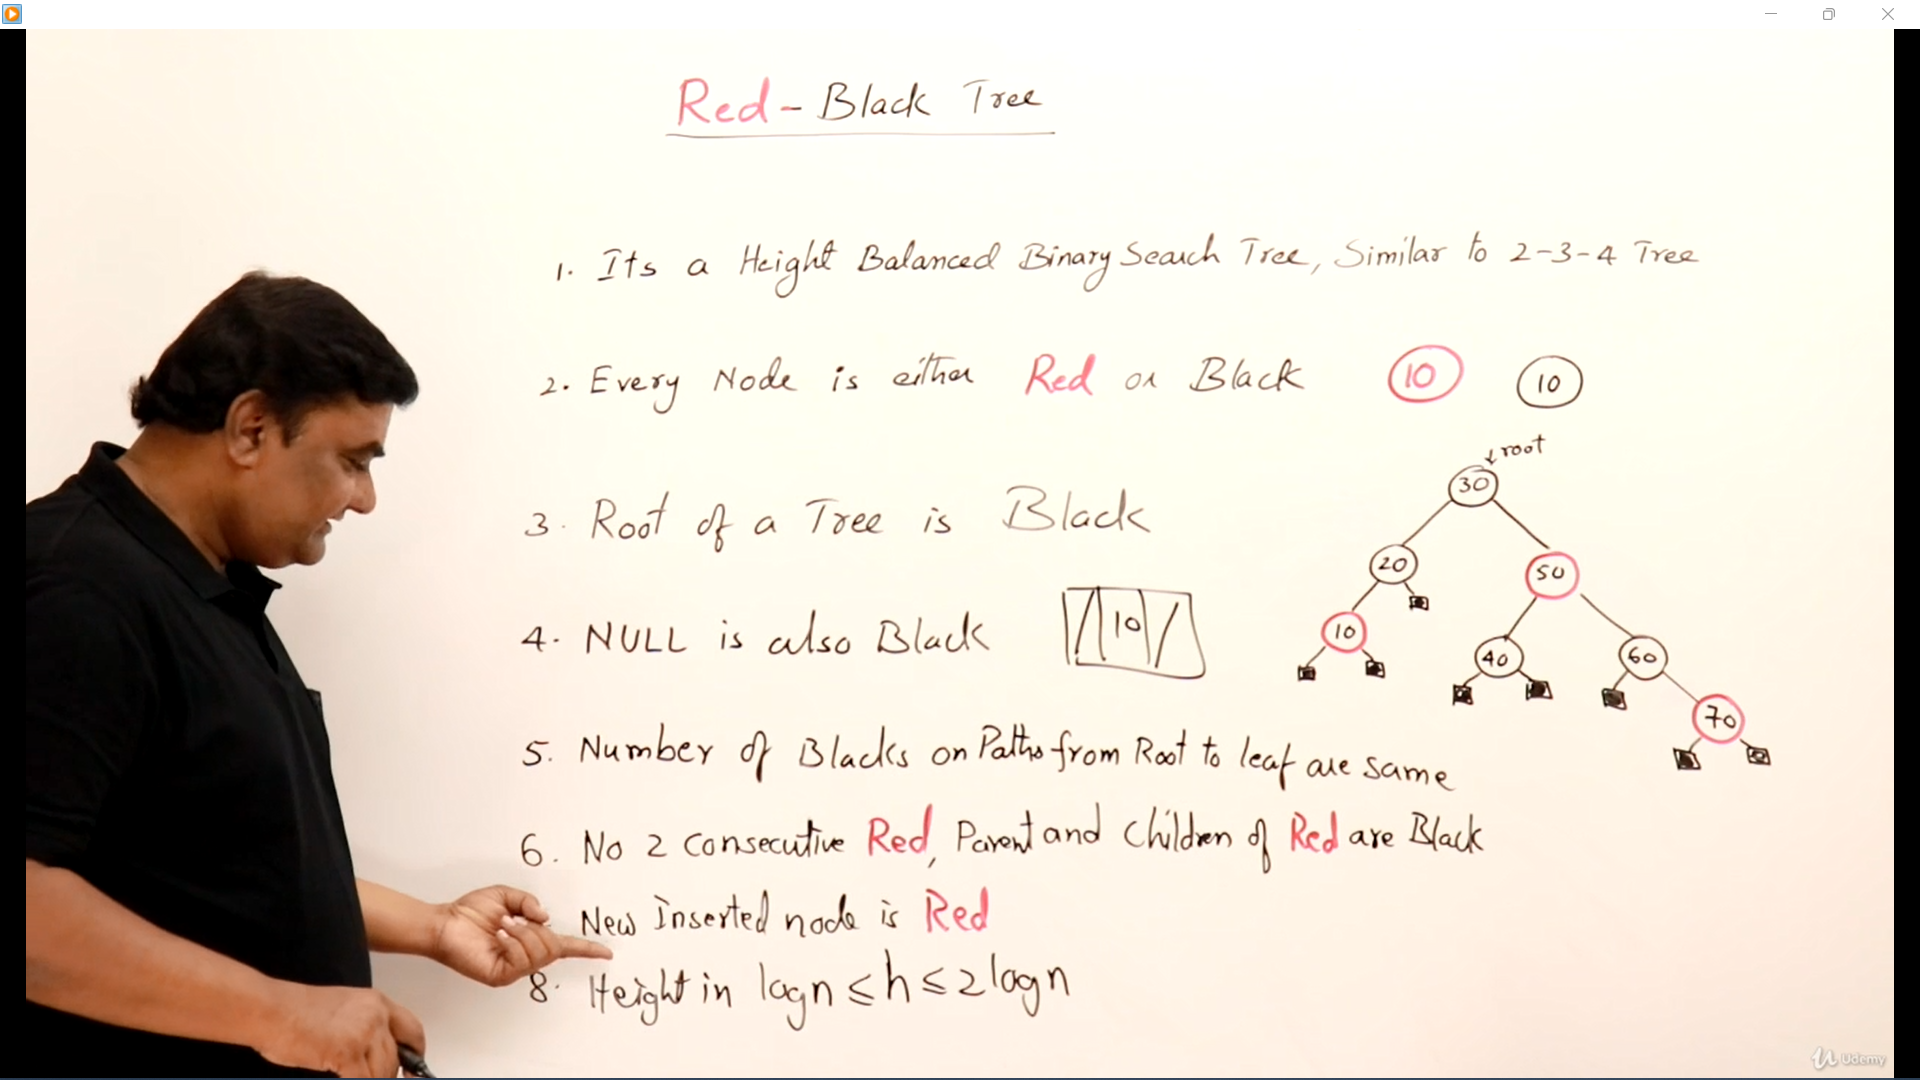 Red - Black Tree
1. Its a Height Balanced Binary Search Tree, Similar to 2-3-4 Tree
2. Every Node is either Red or Black
10
10
root
30
3. Root of a Tree is Black
20
50
4. NULL is also Black
10
10
40
60
70
5. Number of Blacks on Paths from Root to leaf are same
6. No 2 consecutive Red, Parent and Children of Red are Black
New Inserted node is Red
8. Height in logn ≤ h ≤ 2logn
Udemy